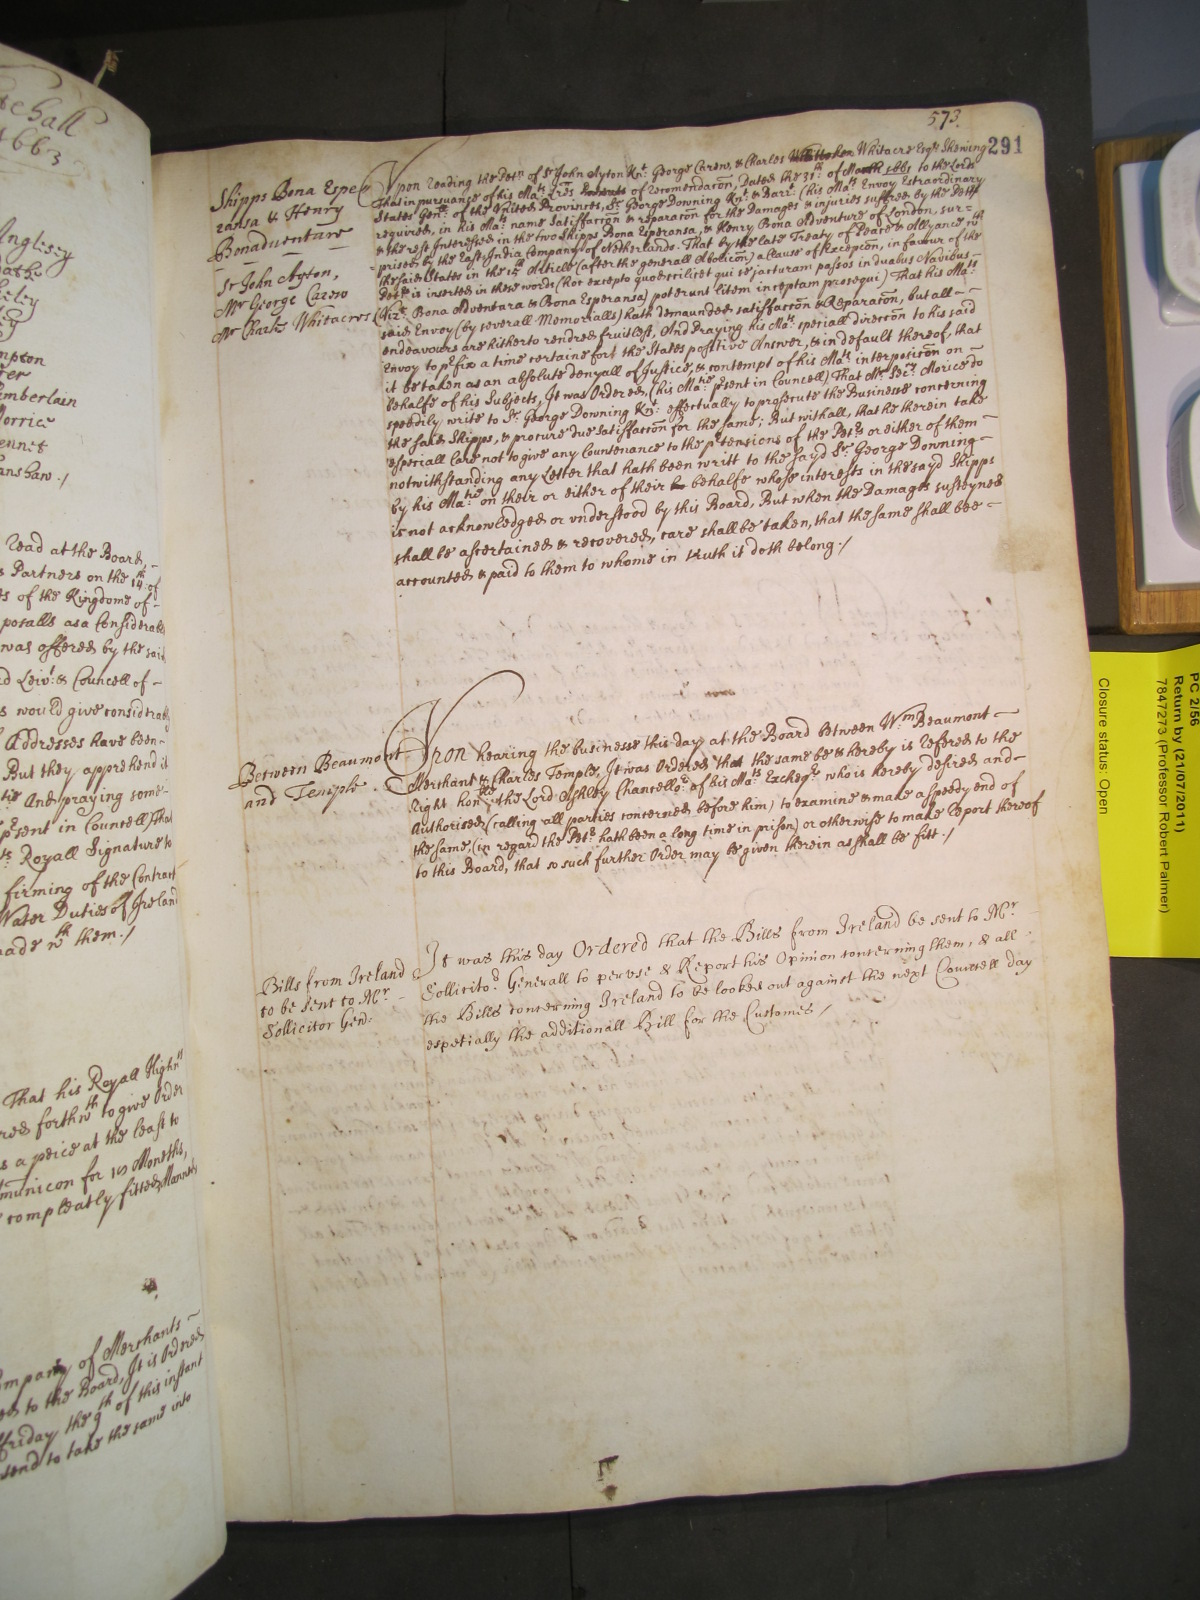 573.
291
Shipps Bona Espe
ransa & Henry
Bonadventure
Sr John Ayton,
Mr George Carew
Mr Charles Whitacre
Upon reading the Petn. of Sr. John Ayton Knt. George Carew, & Charles Whitacre Esqrs. Shewing
That in pursuance of his Mats. Lres of Recomendacon, Dated the 31th. of March 1661 to the Lords
States Genll. of the United Provinces, Sr. George Downing Knt. & Barrt. (his Mats Envoy Extraordinary
required, in his Mats. name Satisfaccon & reparacon for the Damages & injuries suffered by the Petrs
& the rest Interessed in the two Shipps Bona Esperansa, & Henry Bona Adventure of London, sur-
prised by the East India Company of Netherlands. That by the late Treaty of Peace & Allyance wth
the said States in the 15th Article (after the generall Abolicon) a Clause of Excepcon, in favour of the
Petrs. is inserted in these words (hoc excepto quod scilicet qui se jacturam passos in duabus Navibus
(Vizt. Bona Adventura & Bona Esperansa) poterunt litem inceptam prosequi) That his Mats.
said Envoy (by severall Memorialls) hath demaunded satisfaccon & Reparacon, but all
endeavours are hitherto rendred fruitless, And Praying his Mats. speciall direccon to his said
Envoy to pfix a time certaine for the States positive Answer, & in default thereof, that
it be taken as an absolute denyall of Justice, & contempt of his Mats. interposicon on
behalfe of his Subjects, It was Ordered, (his Matie. psent in Councell) That Mr. Secry. Morice do
speedily write to Sr. George Downing Knt. effectually to prosecute the Businesse concerning
the said Shipps, & procure due Satisfaccon for the same; But withall, that he therein take
especiall Care not to give any Countenance to the ptensions of the Petrs. or either of them
notwithstanding any Letter that hath been writt to the sayd Sr. George Downing
by his Matie. on their or either of their behalfe whose interests in the sayd Shipps
is not acknowledged or understood by this Board, But when the Damages susteyned
shall be ascertained & recovered, care shall be taken, that the same shall bee
accounted & paid to them to whome in truth it doth belong./
Between Beaumont
and Temple.
Upon hearing the businesse this day at the Board between Wm. Beaumont
Merchant & Charles Temple, It was Ordered that the same be & hereby is Refered to the
Right Honble. the Lord Ashley Chancellor. of his Mats Excheqr. who is hereby desired and
Authorised (calling all parties concerned before him) to examine & make a speedy end of
the same, (in regard the Petr. hath been a long time in prison) or otherwise to make Report thereof
to this Board, that so such further Order may be given therein as shall be fitt./
Bills from Ireland
to be sent to Mr.
Sollicitor Gen:
It was this day Ordered that the Bills from Ireland be sent to Mr.
Sollicitor. Generall to peruse & Report his Opinion concerning them, & all
the Bills concerning Ireland to be looked out against the next Councell day
espetially the additionall Bill for the Customes/
1663
Anglisey
Morrice
read at the Board,
s Partners on the 14th of
s of the Kingdome of
posalls as a Considerable
was offered by the said
d Leivt. & Councell of
s would give considerable
Addresses have been
But they apprehend it
And praying some
psent in Councell) That
Royall Signature to
firming of the Contract
Water Duties of Ireland
made wth them./
That his Royall Highs
red forthwth to give Order
s a peice at the least to
municon for 10 Moneths,
compleatly fitted, Manned
mpany of Merchants
ed to the Board, It is Ordred
ffriday the 9th of this instant
tend to take the same into
PC 2/56
Return by (21/07/2011)
7847273 (Professor Robert Palmer)
Closure status: Open